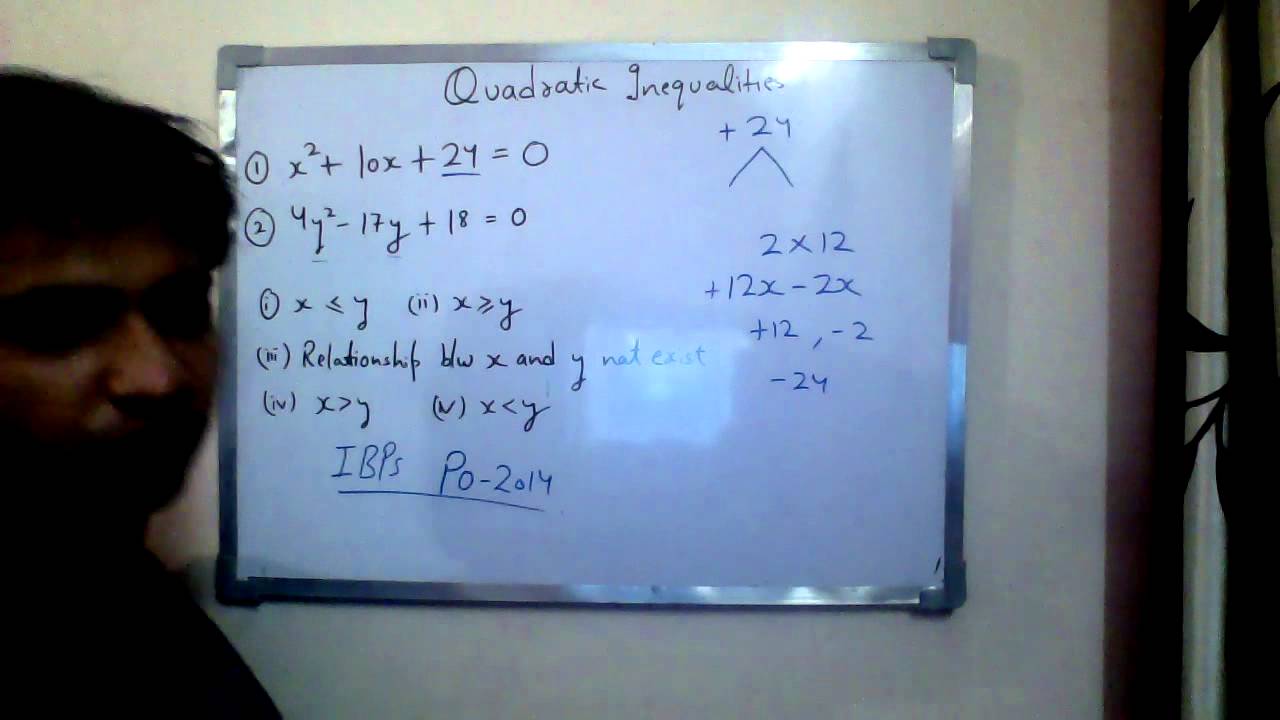 Quadratic Inequalities
① x² + 10x + 24 = 0
② 4y² - 17y + 18 = 0
ⓘ x ≤ y (ii) x ≥ y
(iii) Relationship b/w x and y not exist
(iv) x > y (v) x < y
IBPs Po-2014
+ 24
2 × 12
+12x - 2x
+12 , -2
-24